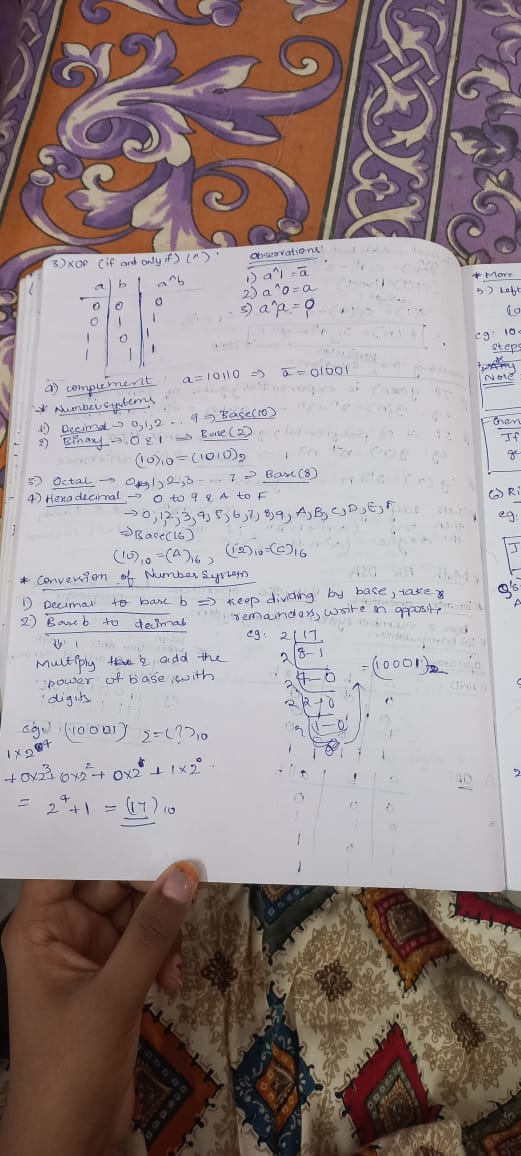 3) XOR (if and only if) (^).
a | b | a^b
0 | 0 | 0
0 | 1 | 1
1 | 0 | 1
1 | 1
Observations:
1) a^1 = a̅
2) a^0 = a
3) a^a = 0
complement: a = 10110 ⇒ a̅ = 01001
* Number systems
1) Decimal → 0,1,2 .. 9 ⇒ Base(10)
2) Binary → 0 & 1 ⇒ Base(2)
(10)10 = (1010)2
3) Octal → 0,1,2,3 --- 7 ⇒ Base(8)
4) Hexadecimal → 0 to 9 & A to F
→ 0,1,2,3,4,5,6,7,8,9, A, B, C, D, E, F
⇒ Base(16)
(10)10 = (A)16, (12)10 = (C)16
* Conversion of Number System
1) Decimal to base b ⇒ keep dividing by base, take
remainders, write in opposite
2) Base b to decimal
⇓
Multiply & add the
power of base with
digits
eg: (10001)2 = (?)10
1×2^4
+ 0×2^3 + 0×2^2 + 0×2^1 + 1×2^0
= 2^4 + 1 = (17)10
eg: 2 | 17
2 | 8-1
2 | 4-0
2 | 2-0
2 | 1-0
= (10001)2
* More
5) Left
eg: 10
Steps
Note
If
6) Ri
eg: